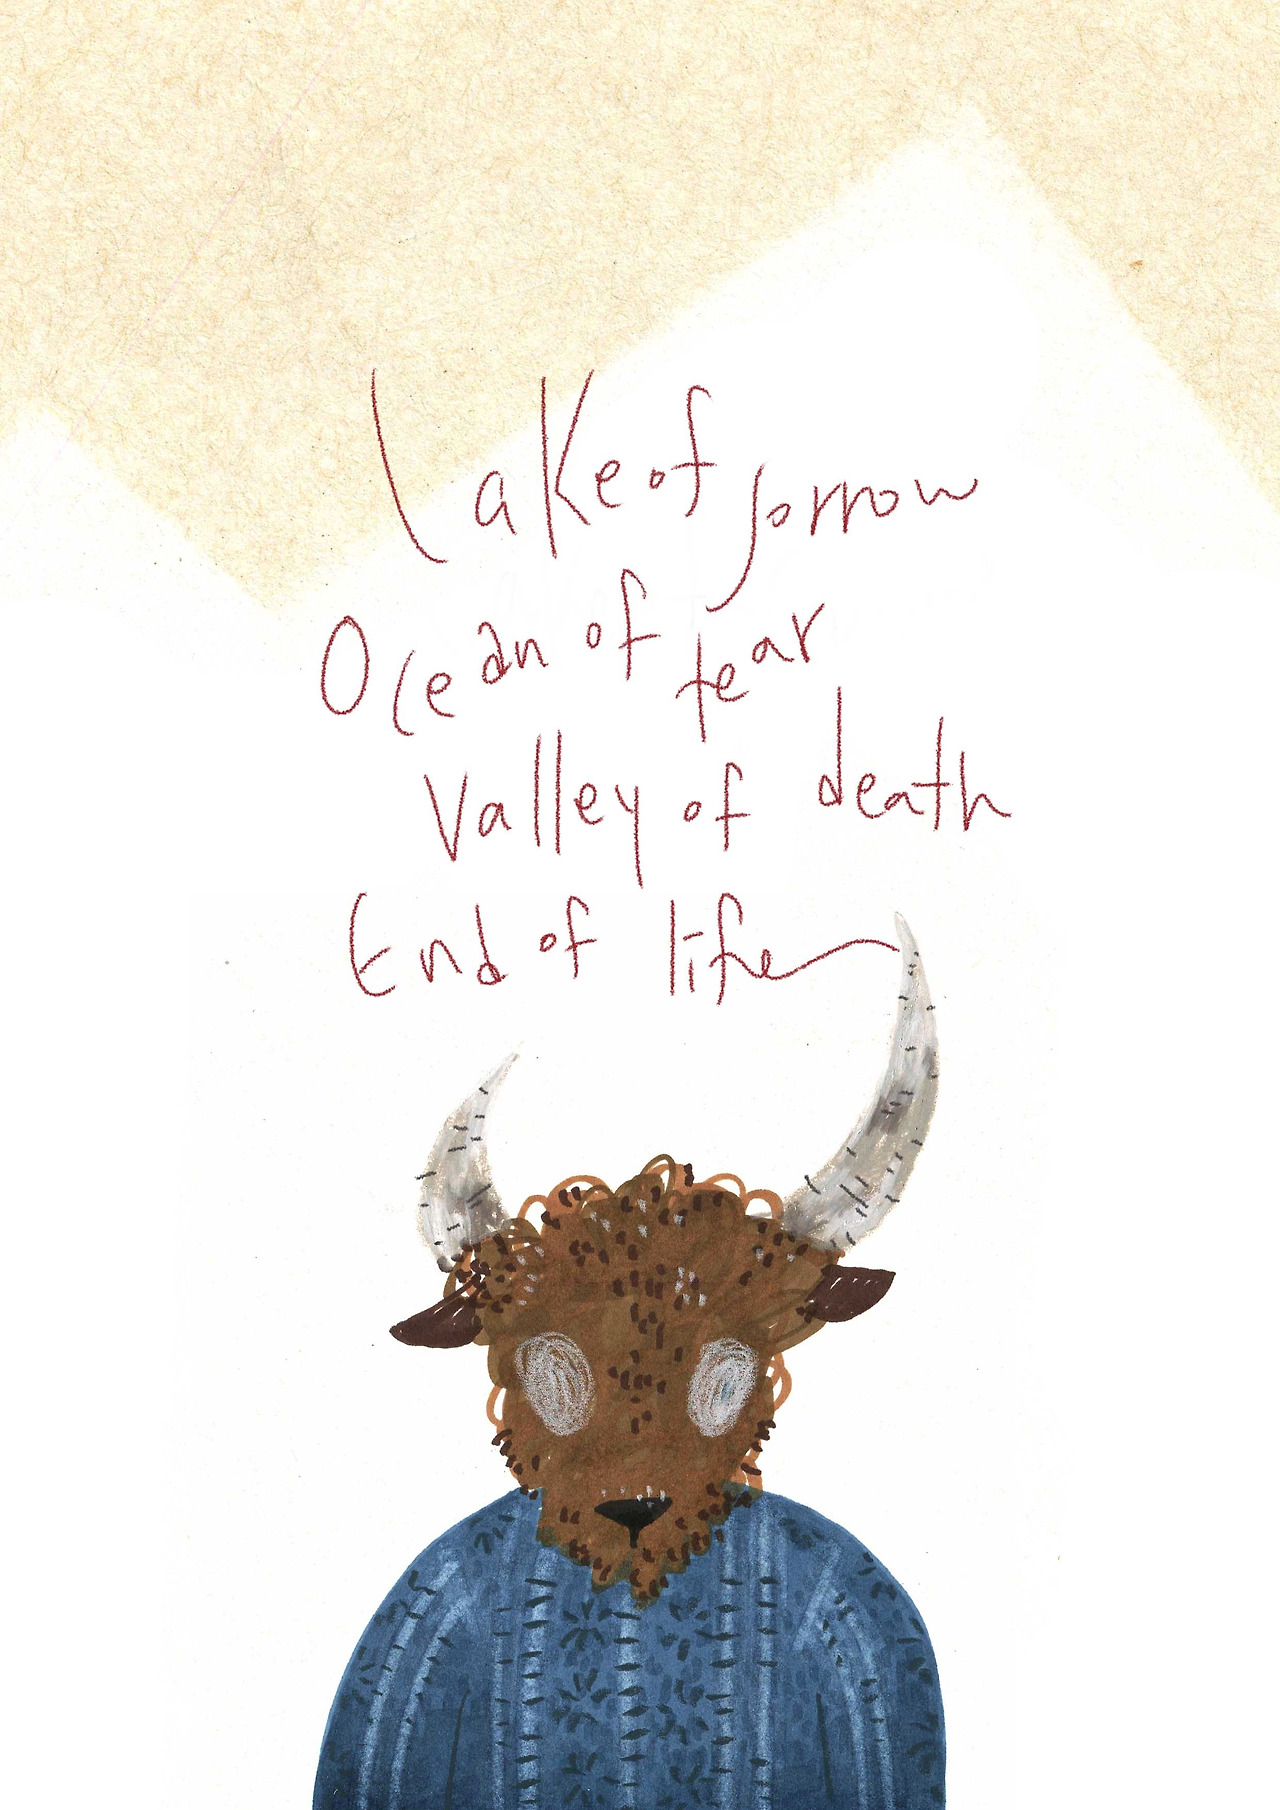 Lake of sorrow
Ocean of tear
Valley of death
End of life